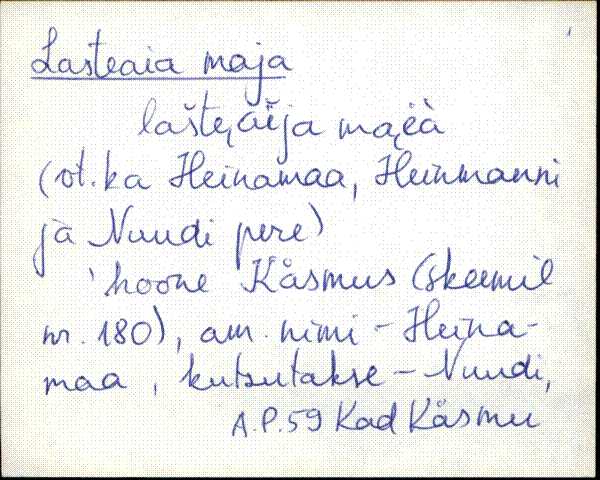 Lasteaia maja
lašte͔aĭja ma͔ɛ̈à
(vt. ka Heinamaa, Heinmanni
ja Nuudi pere)
'hoone Käsmus (skeemil
nr. 180), am. nimi - Heina-
maa, kutsutakse - Nuudi,
A.P. 59 Kad Käsmu